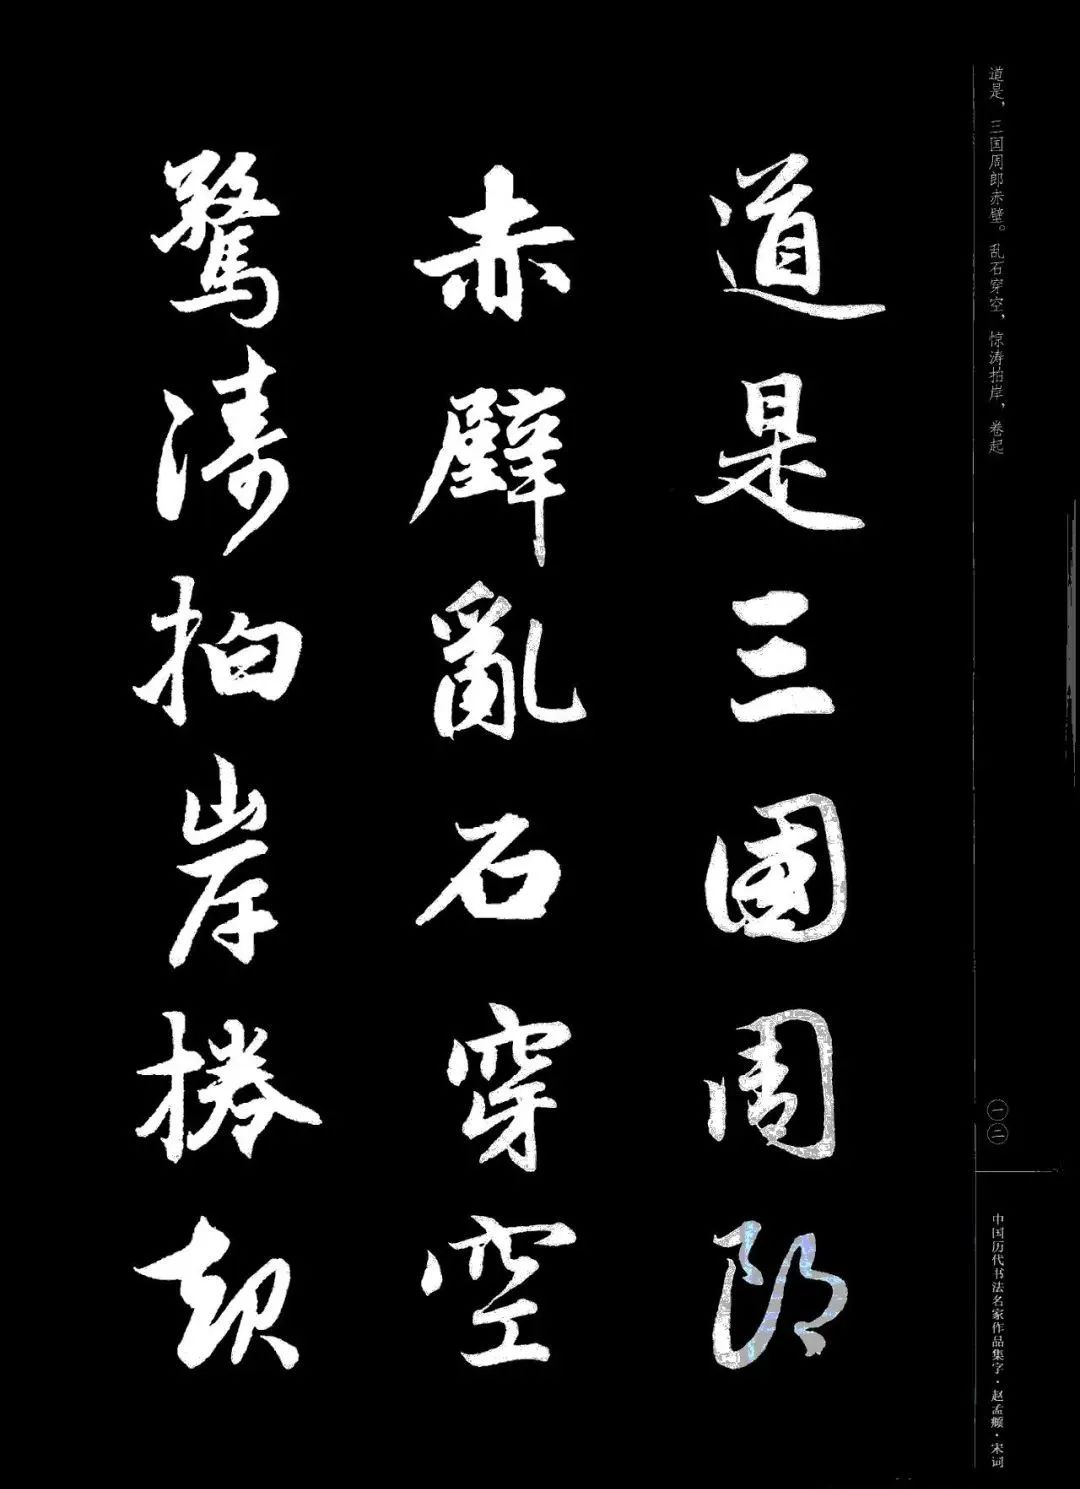 道是，三国周郎赤壁。乱石穿空，惊涛拍岸，卷起
道是三國周郎
赤壁亂石穿空
驚濤拍岸捲起
一二
中国历代书法名家作品集字·赵孟頫·宋词